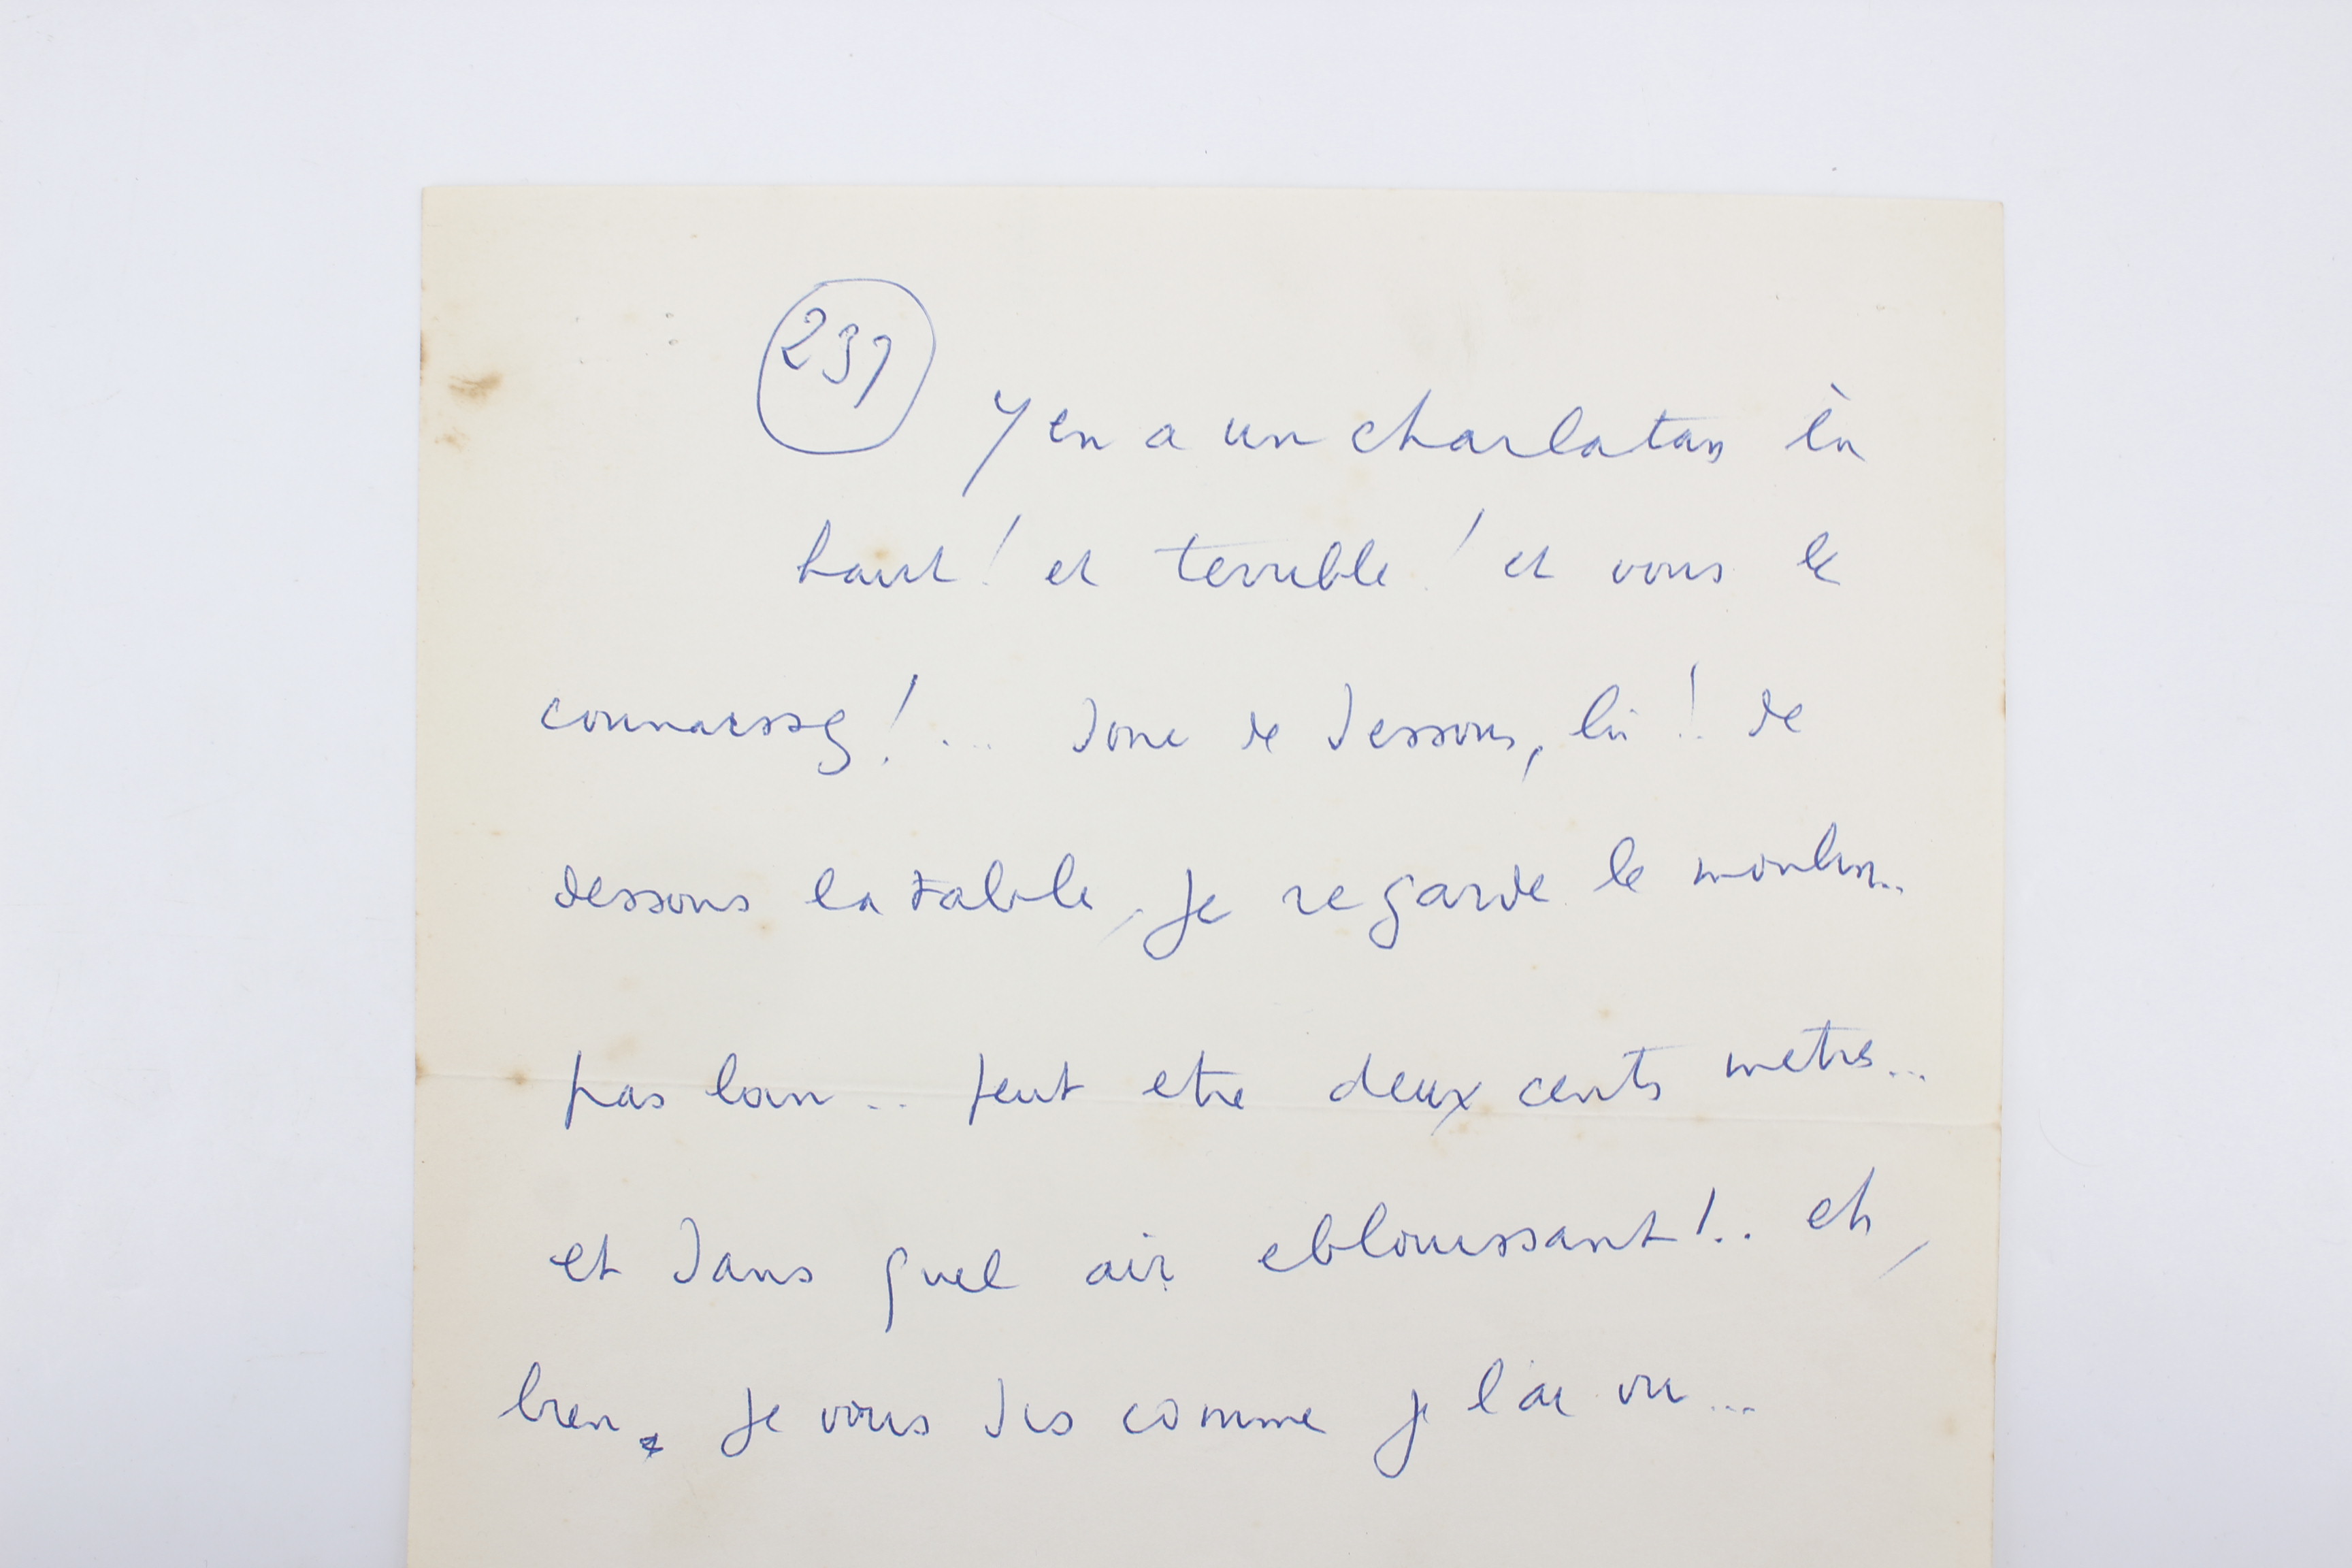 237
Y en a un charlatan là
haut ! et terrible ! et vous le
connaissez ! ... donc de dessous, là ! de
dessous la table, je regarde le moulin..
pas loin .. peut etre deux cents metres...
et dans quel air eblouissant ! .. eh,
bien, je vous dis comme je l'ai vu ...